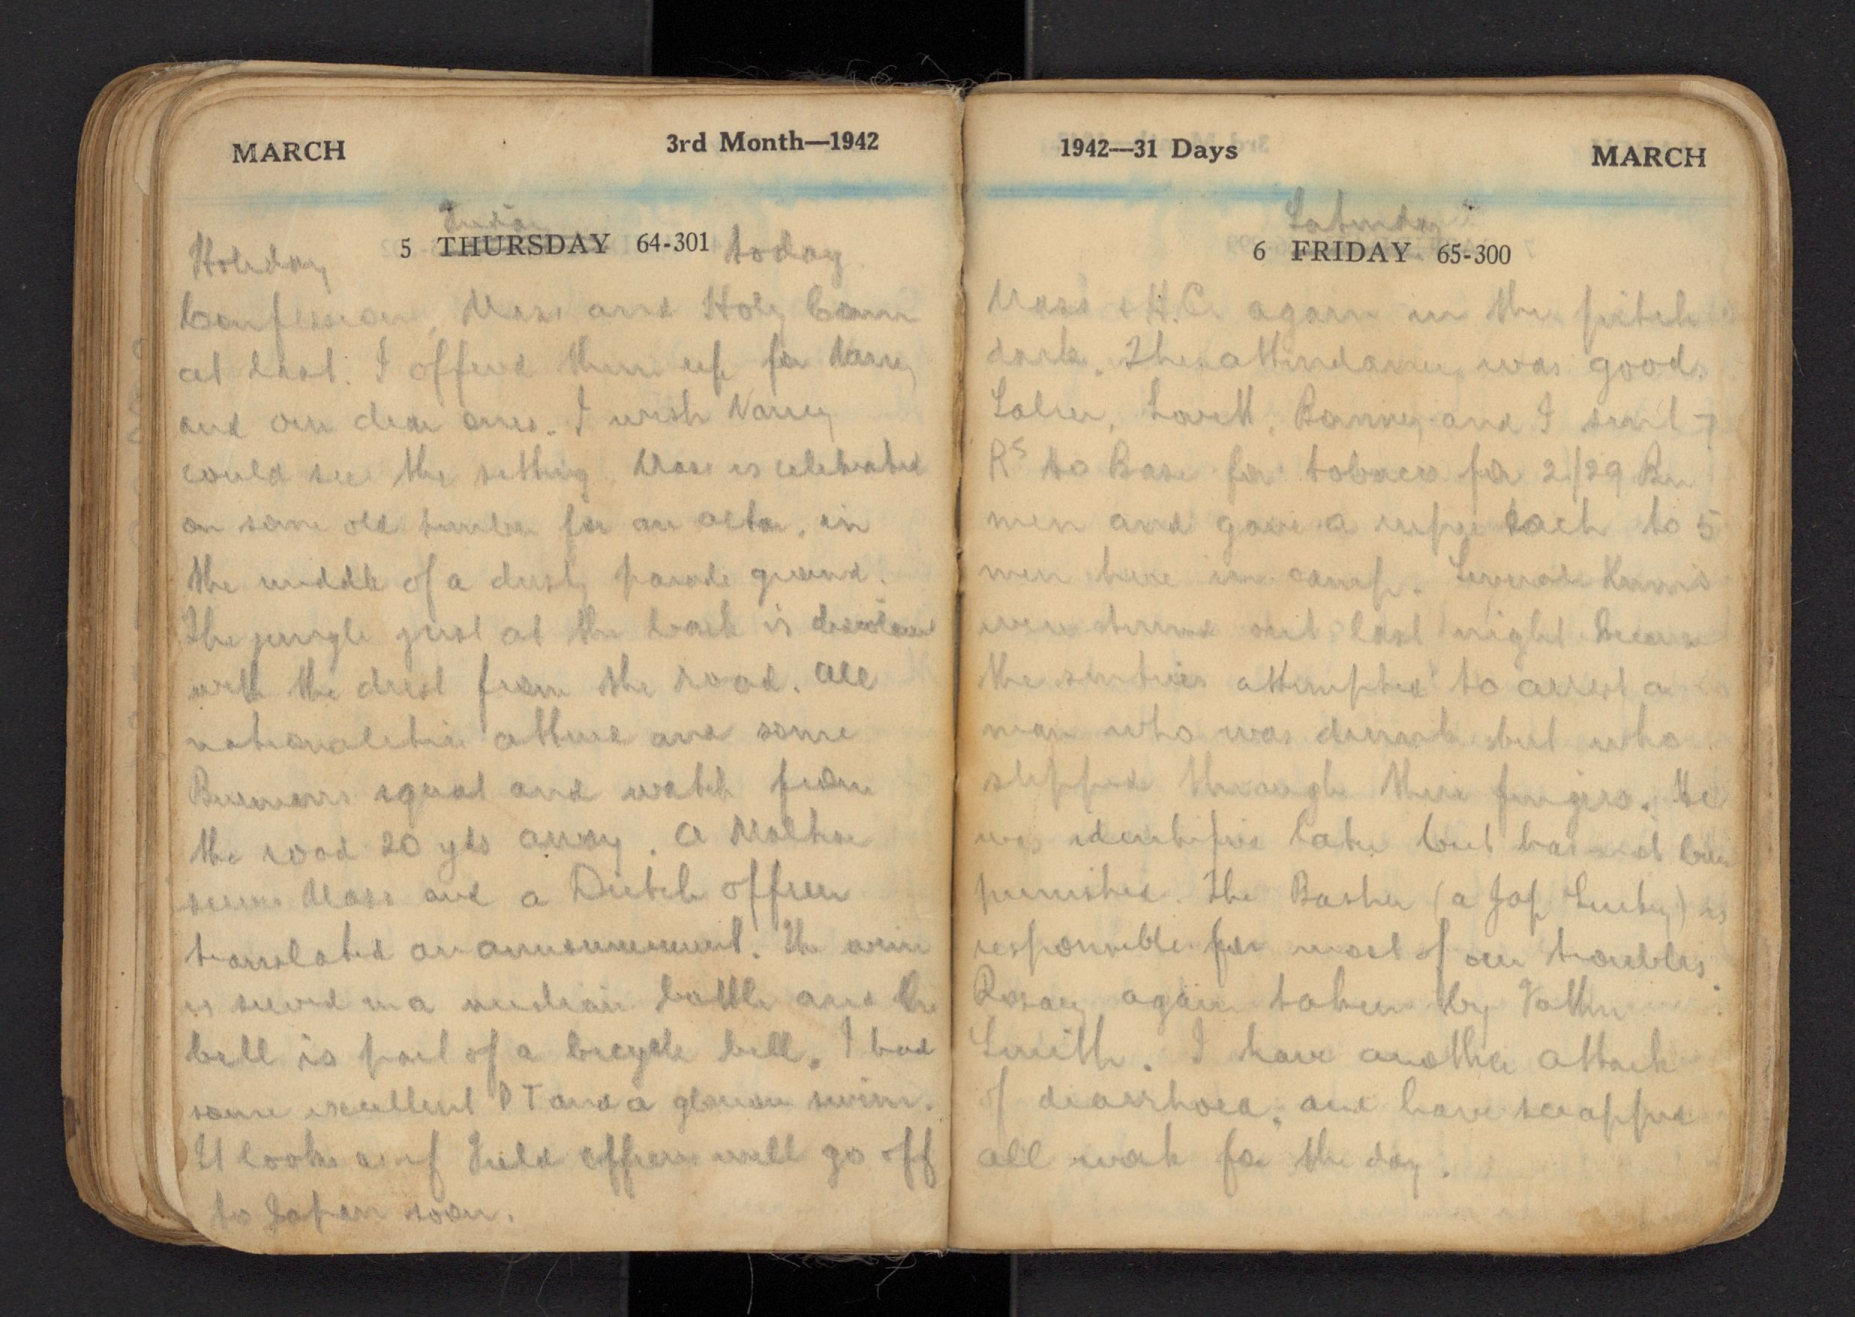 MARCH 3rd Month—1942
Friday
Holiday 5 THURSDAY 64-301 today
Confession, Mass and Holy Comm
at last. I offered them up for Nancy
and our dear ones. I wish Nancy
could see the setting. Mass is celebrated
on some old timber for an altar, in
the middle of a dusty parade ground.
The jungle just at the back is
with the dust from the road. All
nationalities attend and some
Burmans squat and watch from
the road 20 yds away. A Maltese
serves Mass and a Dutch officer
translated an announcement. The wine
is served in a medicine bottle and the
bell is part of a bicycle bell. I had
some excellent P T and a glorious swim.
It looks as if Field officers will go off
to Japan soon.
1942—31 Days MARCH
Saturday
6 FRIDAY 65-300
Mass & H.C. again in the pitch
dark. The attendance was good.
Lovett, and I sent 7
Rs to Base for tobacco for 2/29 Bn
men and gave a rupee each to 5
men here in camp. Several Kumis
were turned out last night because
the sentries attempted to arrest a
man who was drunk but who
slipped through their fingers. He
was identified later but has not been
punished. The Basher (a Jap ) is
responsible for most of our troubles.
Rosary again taken by Father
Smith. I have another attack
of diarrhoea, and have scrapped
all work for the day.